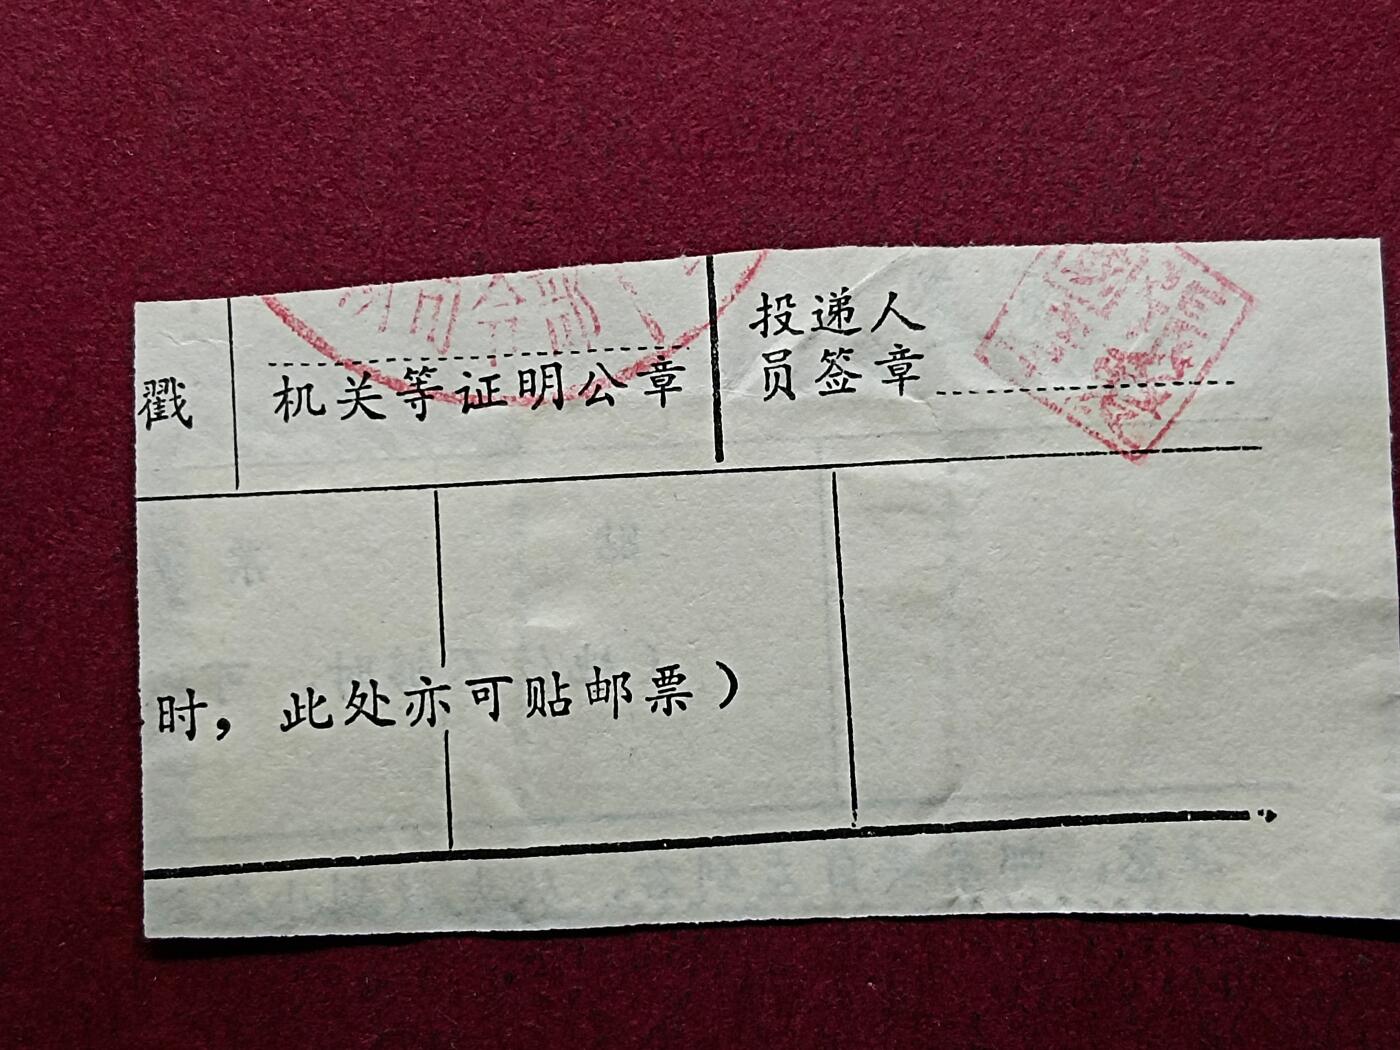 司令部
投递人
员签章
戳
机关等证明公章
时，此处亦可贴邮票）